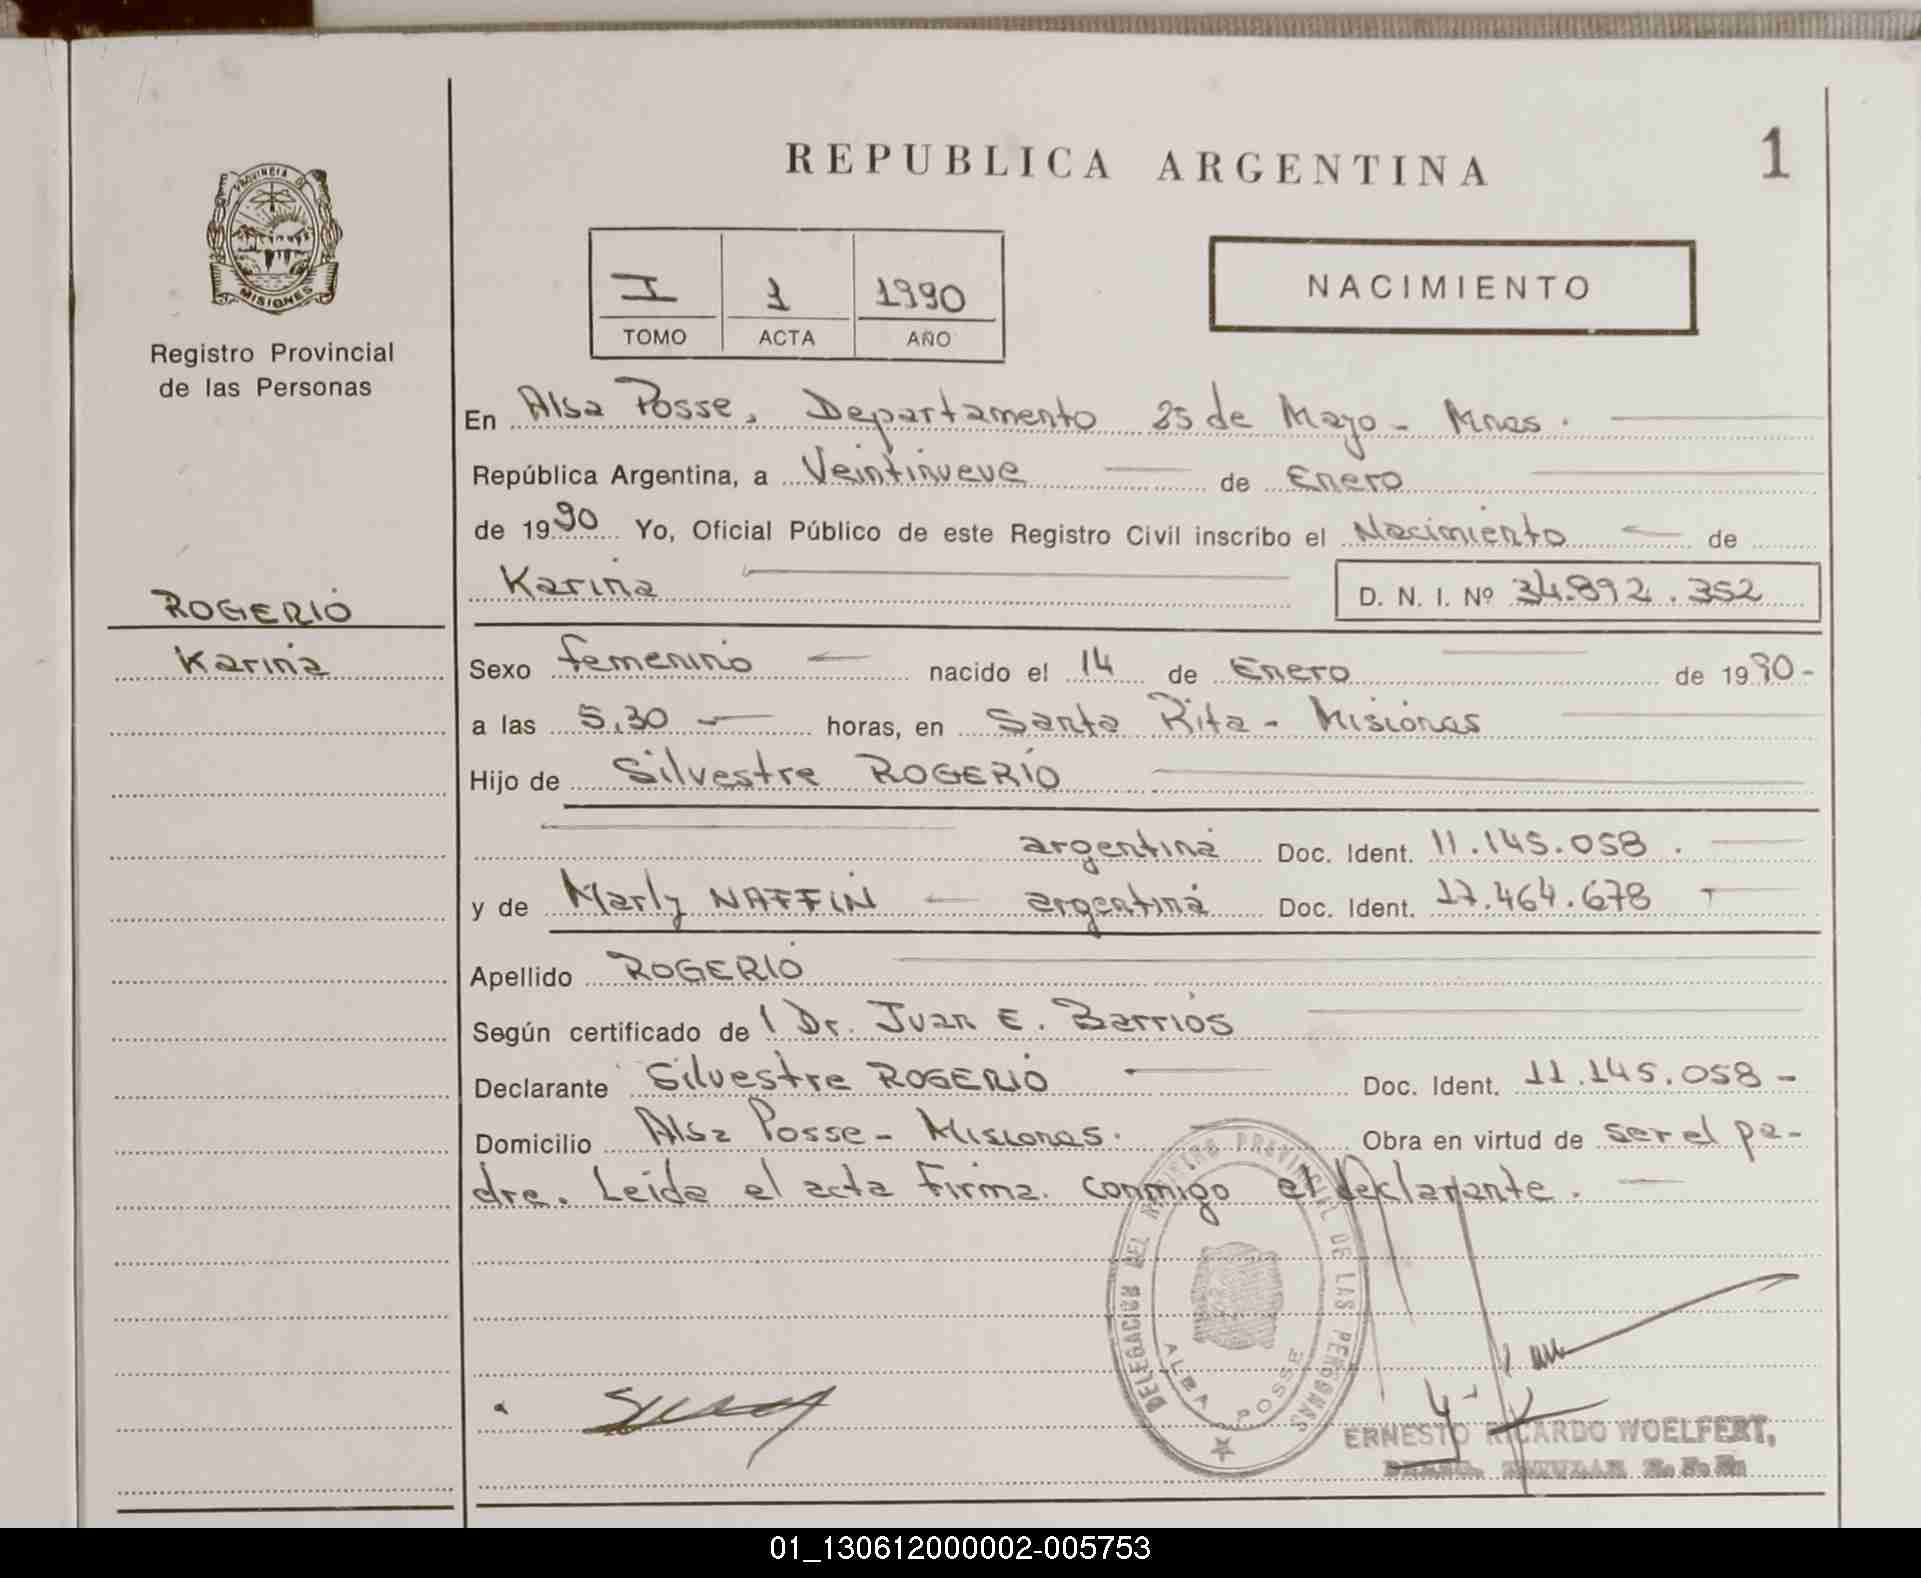 REPUBLICA ARGENTINA
1
PROVINCIA DE
MISIONES
Registro Provincial
de las Personas
I 1 1990
TOMO ACTA AÑO
NACIMIENTO
En Alba Posse, Departamento 25 de Mayo - Mnes.
República Argentina, a Veintinueve de Enero
de 1990 Yo, Oficial Público de este Registro Civil inscribo el Nacimiento de
Karina D. N. I. Nº 34.892.352
ROGERIO
Karina
Sexo femenino nacido el 14 de Enero de 1990-
a las 5,30 horas, en Santa Rita - Misiones
Hijo de Silvestre ROGERIO
argentina Doc. Ident. 11.145.058.
y de Marly NAFFIN argentina Doc. Ident. 17.464.678
Apellido ROGERIO
Según certificado de Dr. Juan E. Barrios
Declarante Silvestre ROGERIO Doc. Ident. 11.145.058-
Domicilio Alba Posse - Misiones. Obra en virtud de ser el pa-
dre. Leida el acta firma conmigo el declarante.
DELEGACION DEL REGISTRO PROVINCIAL DE LAS PERSONAS
ALBA POSSE
ERNESTO RICARDO WOELFERT,
01_130612000002-005753